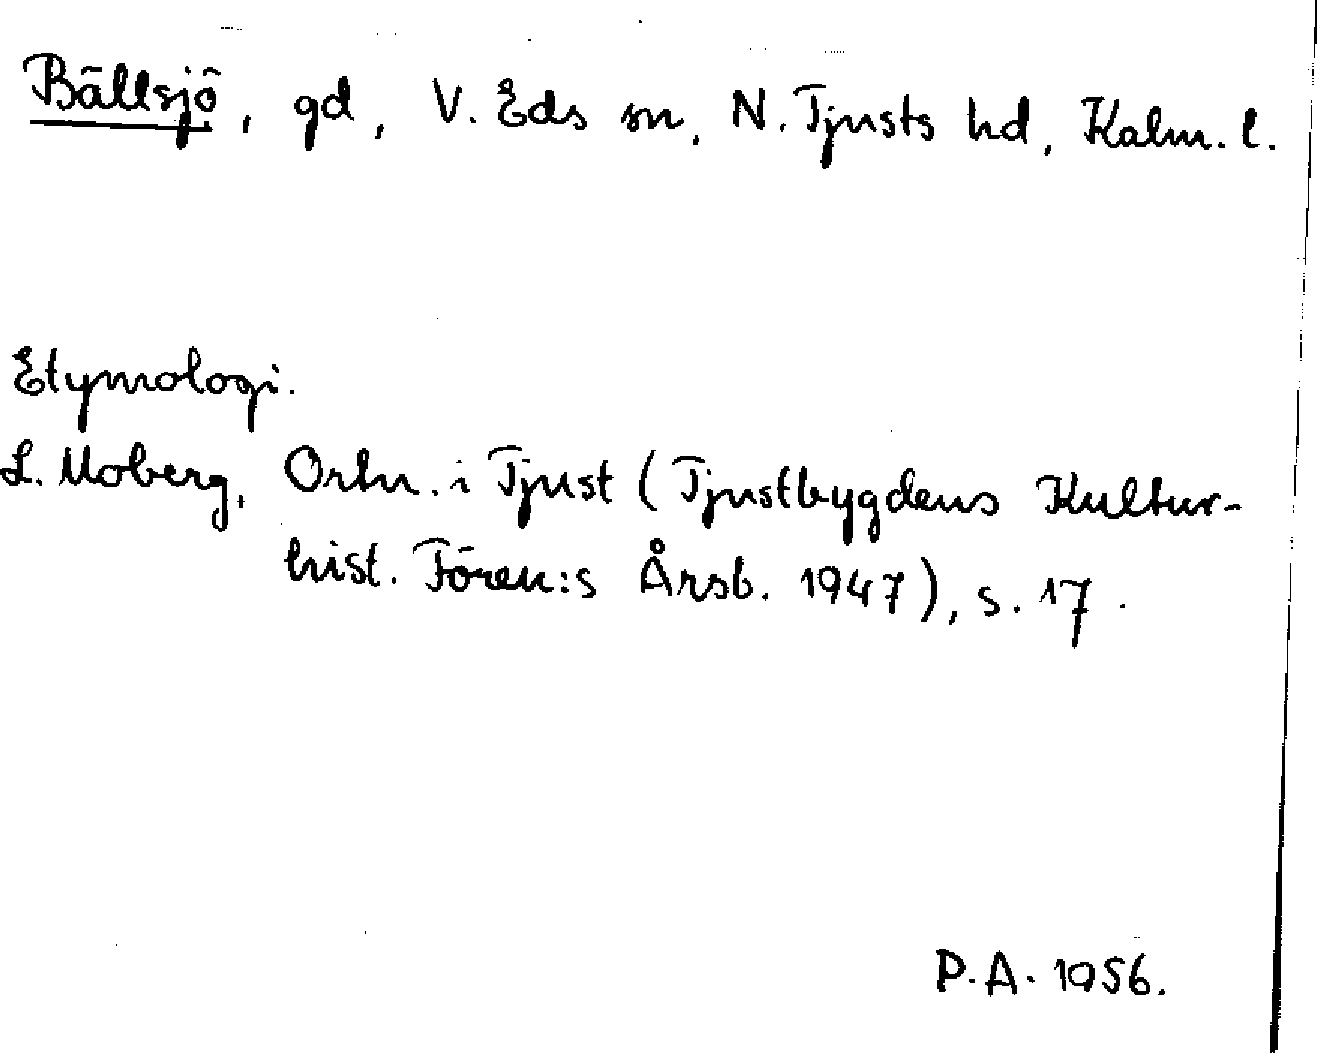 Bällsjö, gd, V. Eds sn, N. Tjusts hd, Kalm. l.
Etymologi.
L. Moberg, Ortn. i Tjust (Tjustbygdens Kultur-
hist. Fören:s Årsb. 1947), s. 17.
P.A. 1956.